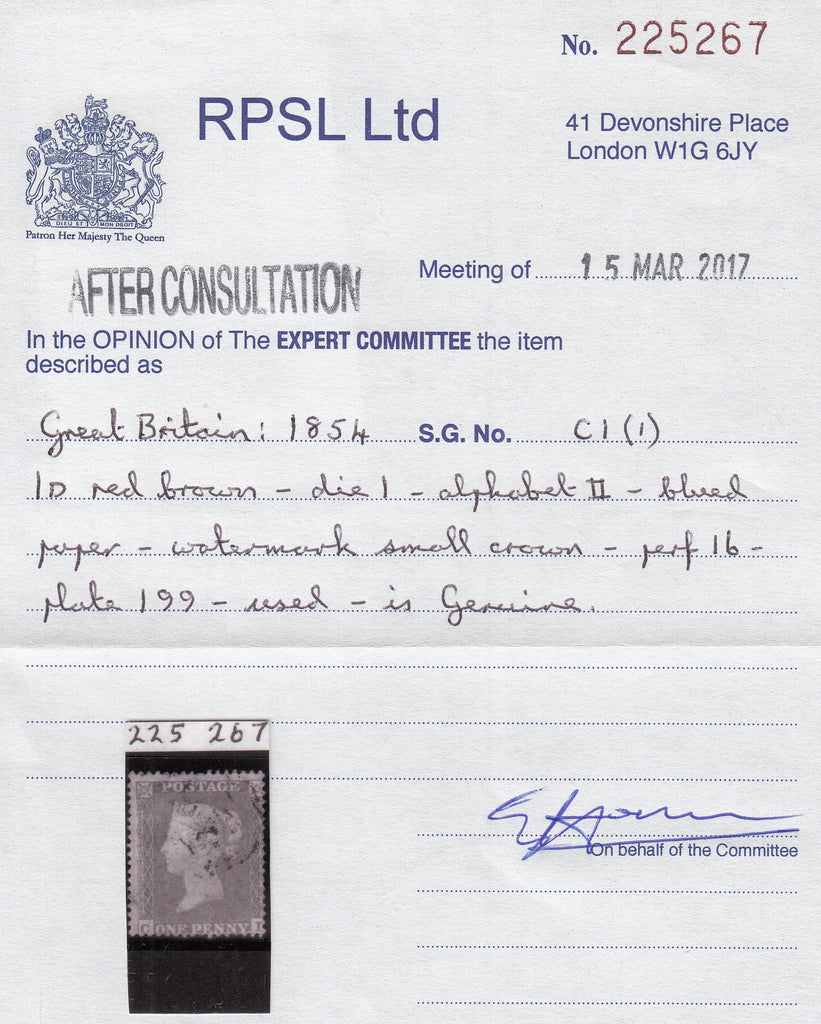 No. 225267
RPSL Ltd
41 Devonshire Place
London W1G 6JY
DIEU ET MON DROIT
Patron Her Majesty The Queen
Meeting of 15 MAR 2017
AFTER CONSULTATION
In the OPINION of The EXPERT COMMITTEE the item
described as
Great Britain: 1854 S.G. No. C1(1)
1D red brown - die 1 - alphabet II - blued
paper - watermark small crown - perf 16 -
plate 199 - used - is Genuine.
225 267
POSTAGE
C ONE PENNY I
On behalf of the Committee